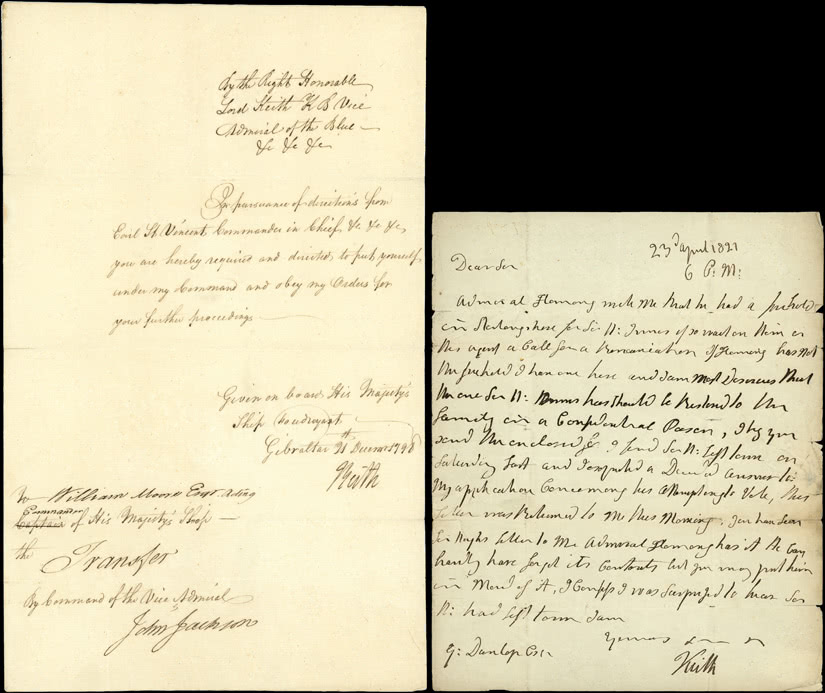 By the Right Honorable
Lord Keith K B Vice
Admiral of the Blue
&c &c &c
In pursuance of directions from
Earl St. Vincent, Commander in Chief, &c &c &c,
you are hereby required and directed to put yourself
under my Command and obey my Orders for
your further proceedings
Given on board His Majesty's
Ship Foudroyant
Gibraltar 21st December 1798
Keith
To William Moore Esqr. Acting
Commander
Captain of His Majesty's Ship
the
Transfer
By Command of the Vice Admiral
John Jackson
23d April 1821
6 P: M:
Dear Sir
Admiral Fleming me that he had a
in for Sir H: Innes on him or
His agent a Call for a Renunciation If Fleming has not
the I have one here and I am most Desireous that
the one Sir H: has should be Restored to the
family in a Confidential Person, I beg you
send the enclosed I find Sir H: left town on
Saturday last and I a answer to
My application Concerning his attempting to Vote, this
letter was Returned to Me this Morning. You have seen
Sir Hughs letter to Me Admiral Fleming has it He can
hardly have forgot its Contents but you may put him
in Mind of it, I Confess I was Surprized to hear Sir
H: had left town I am
Yours
Keith
G: Dunlop Esqr